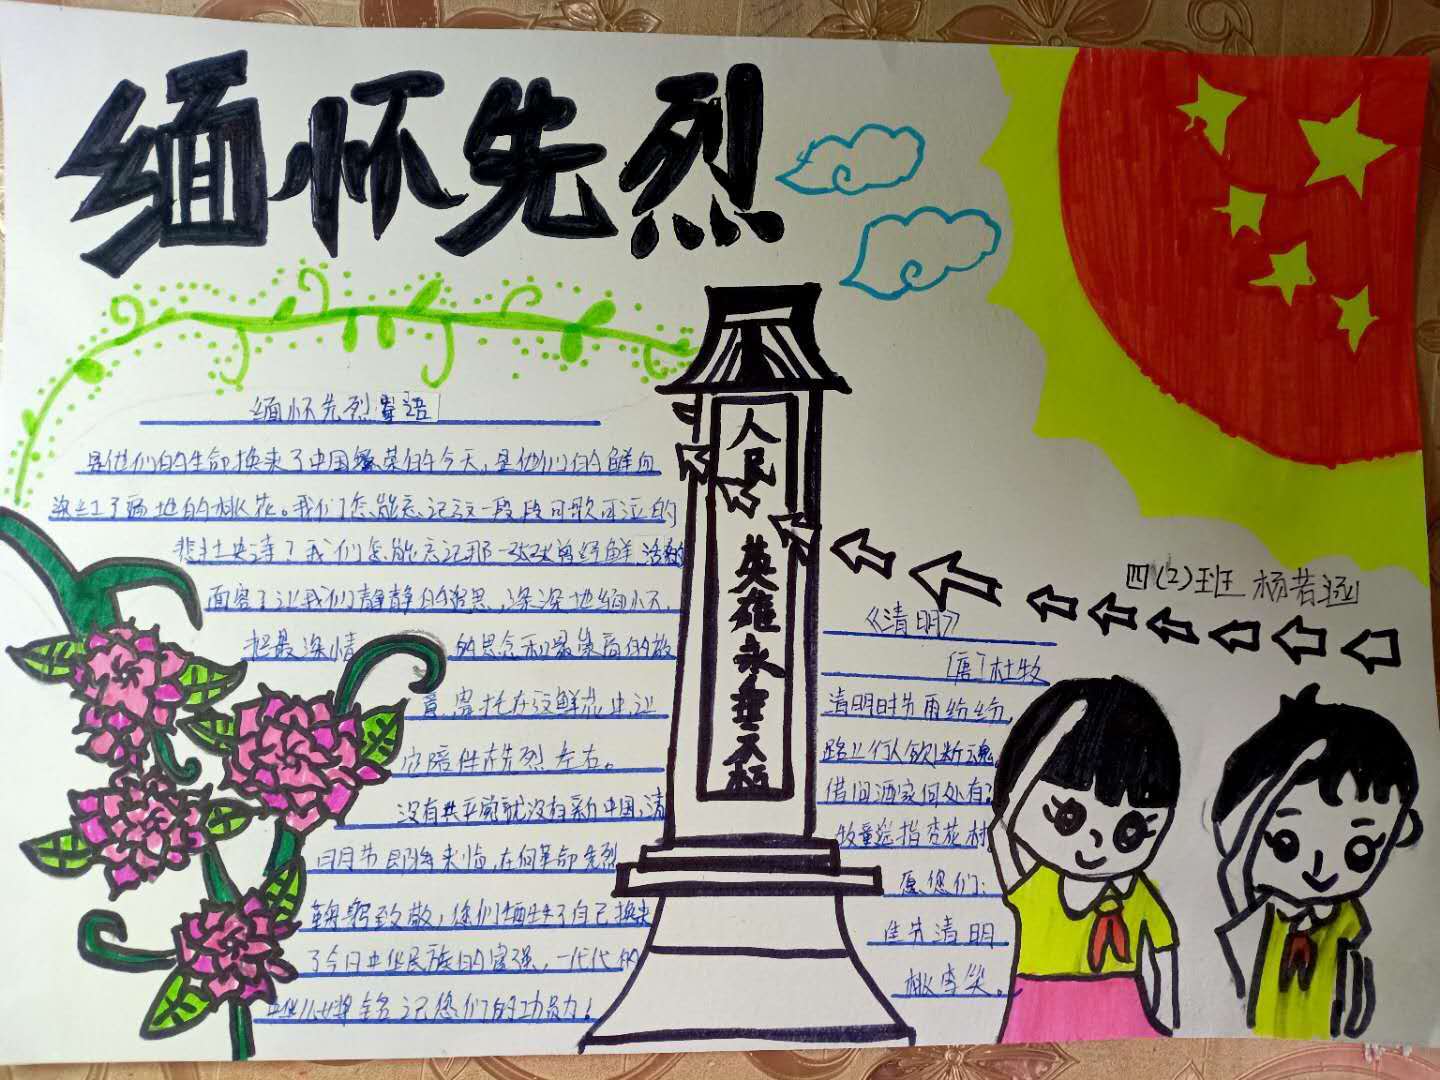 缅怀先烈
缅怀先烈寄语
是他们的生命换来了中国繁荣的今天,是他们的鲜血
染红了满地的桃花。我们怎能忘记这一段段可歌可泣的
悲壮史诗?我们怎能忘记那一张张曾经鲜活的
面容?让我们静静的沉思,深深地缅怀,
把最深情的思念和最崇高的敬
意寄托在这鲜花中让
它陪伴在先烈左右。
没有共产党就没有新中国,清
明节即将来临,在向革命先烈
鞠躬致敬,您们牺牲了自己换来
了今日中华民族的富强,一代代的
中华儿女将铭记您们的功
人民英雄永垂不朽
四(2)班 杨若
《清明》
[唐]杜牧
清明时节雨纷纷,
路上行人欲断魂。
借问酒家何处有?
牧童遥指杏花村,
愿您们:
清明
桃李笑。